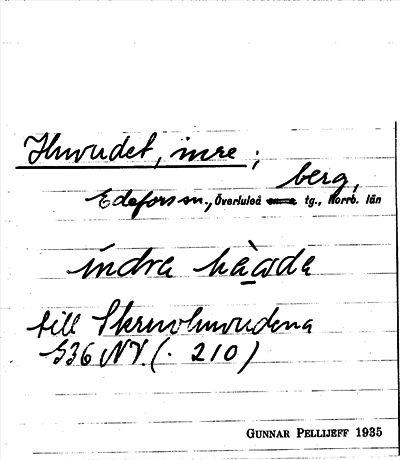 Huvudet, inre;
berg,
Edefors sn., Överluleå tg., Norrb. län
índra hàvda
till Skruvhuvudena
S36 NV. (· 210)
GUNNAR PELLIJEFF 1935